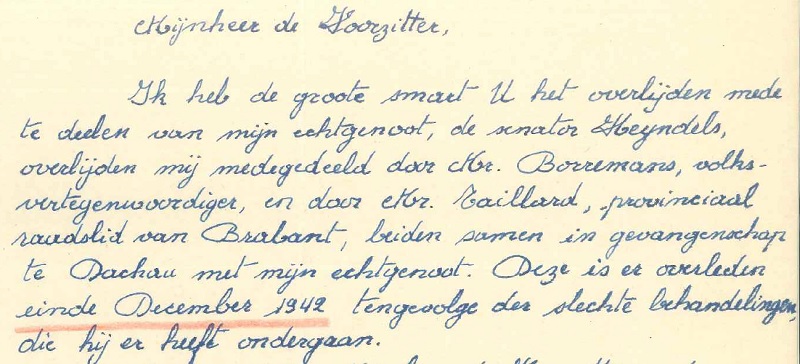 Mijnheer de Voorzitter,
Ik heb de groote smart U het overlijden mede
te deelen van mijn echtgenoot, de senator Heyndels,
overlijden mij medegedeeld door Mr. Borremans, volks-
vertegenwoordiger, en door Mr. Taillard, provinciaal
raadslid van Brabant, beiden samen in gevangenschap
te Dachau met mijn echtgenoot. Deze is er overleden
einde December 1942 tengevolge der slechte behandelingen,
die hij er heeft ondergaan.